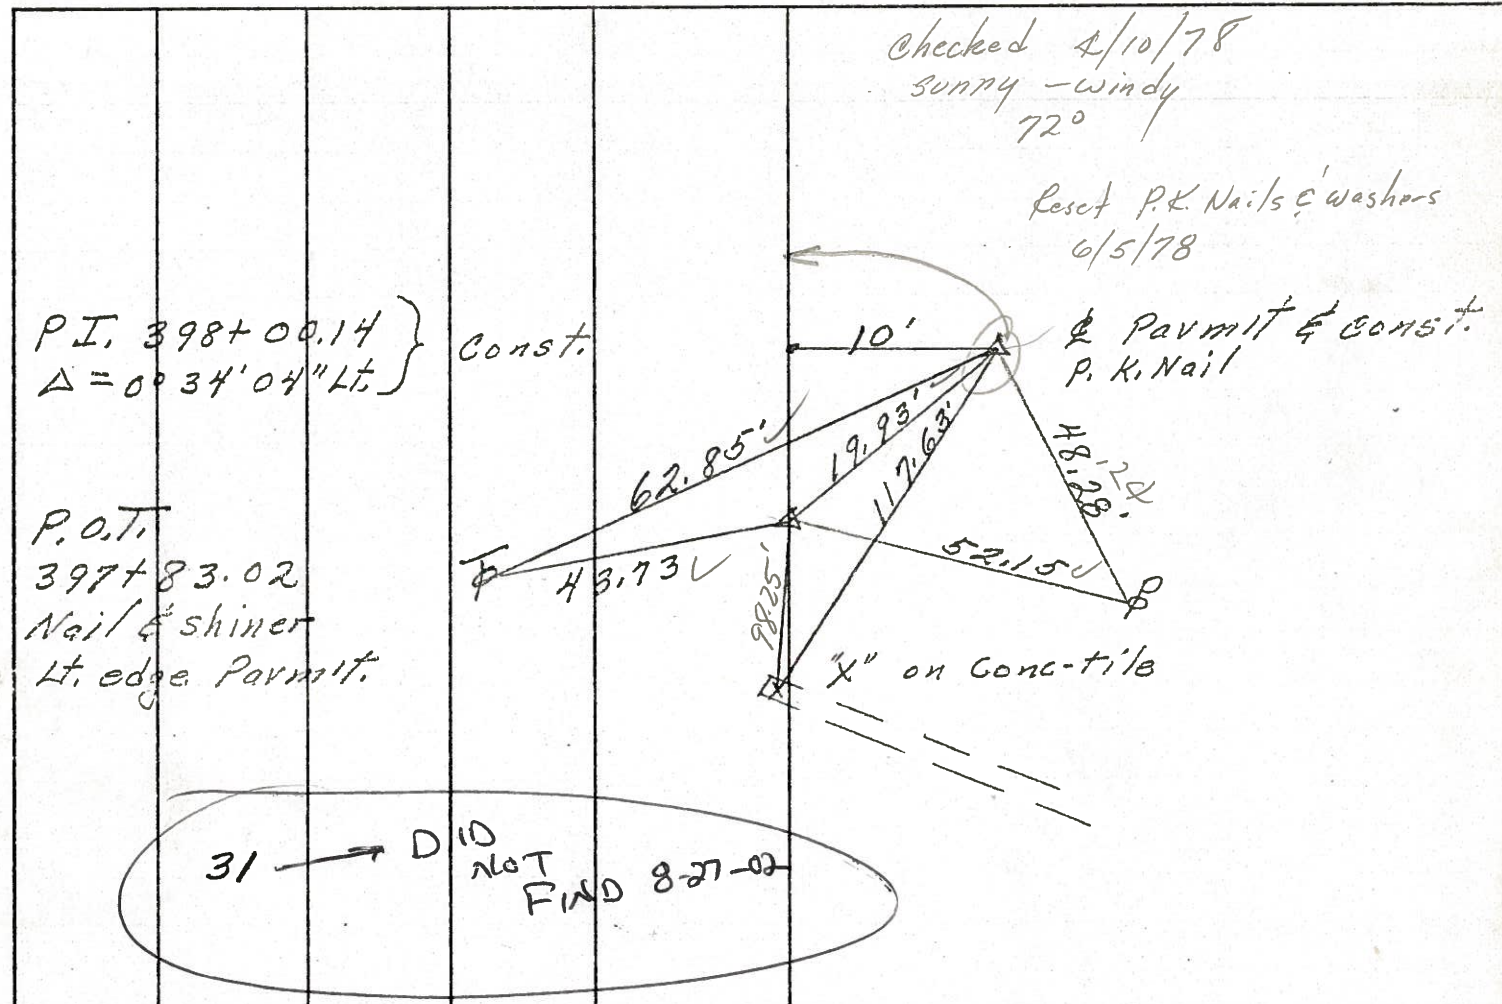 Checked 4/10/78
sunny - windy
72°
Reset P.K. Nails & washers
6/5/78
P.I. 398+00.14
Δ = 0°34'04" Lt.
Const.
10'
℄ Pavm't & const.
P.K. Nail
62.85'✓
19.93'✓
117.63'
48.28'
P.O.T.
397+83.02
Nail & shiner
Lt. edge Pavm't.
43.73✓
52.15✓
98.25'
"X" on Conc-tile
31 → DID
NOT
FIND 8-27-02